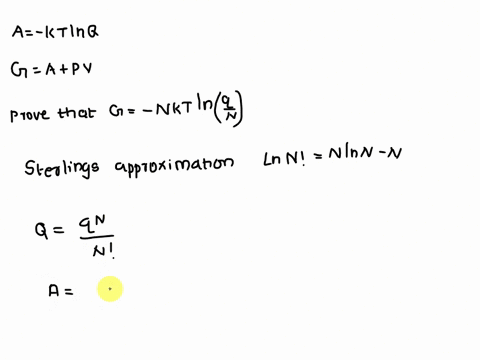 A=-KTlnQ
G=A+PV
prove that G=-NKT ln(q/N)
Sterlings approximation LnN!=NlnN-N
Q = q^N/N!
A=